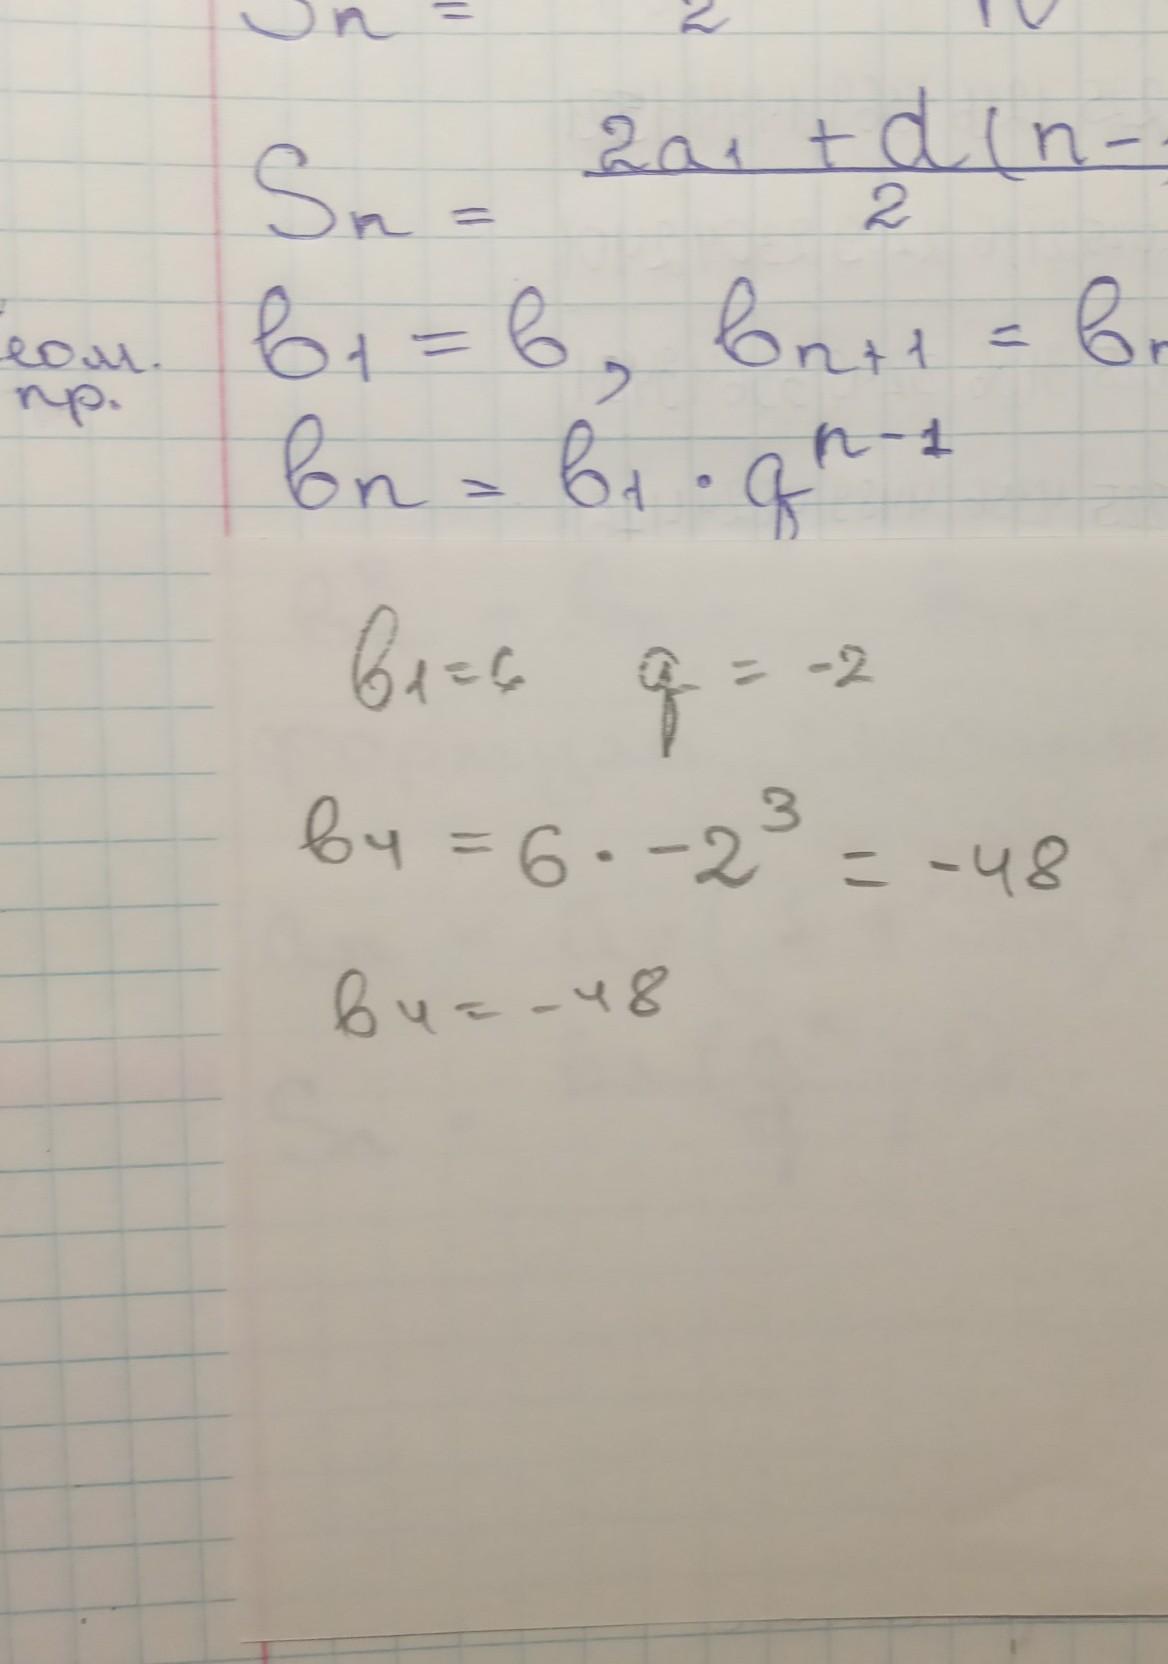 Sn = 2
Sn = 2a1 + d(n - / 2
еом. пр.
b1 = b, bn+1 = bn
bn = b1 · q^n-1
b1 = 6 q = -2
b4 = 6 · -2^3 = -48
b4 = -48